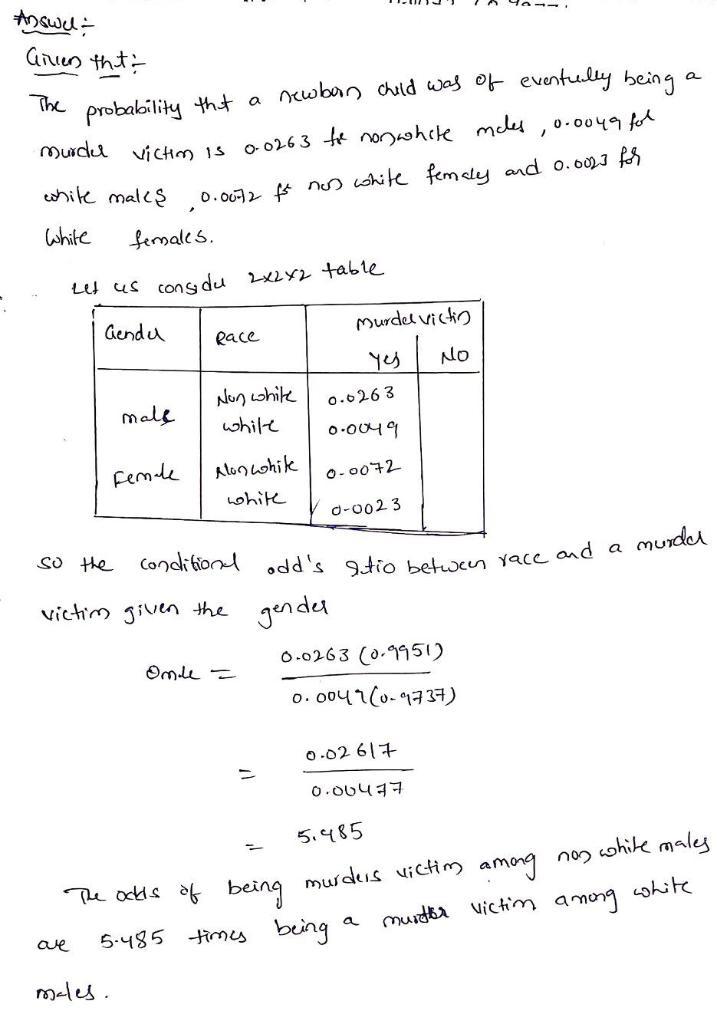 Answer :-
Given tht :-
The probability tht a newborn child was of eventully being a
murder victim is 0.0263 for nonwhite males , 0.0049 for
white males , 0.0072 for non white femaly and 0.0023 for
White females.
Let us consider 2x2x2 table
Gender Race Murder victim
Yes No
male Non white 0.0263
white 0.0049
Female Nonwhite 0.0072
white 0.0023
so the conditional odd's ratio between race and a murder
victim given the gender
Θmale = 0.0263 (0.9951)
0.0049 (0.9737)
= 0.02617
0.00477
= 5.485
The odds of being murders victim among non white males
are 5.485 times being a murder victim among white
males.